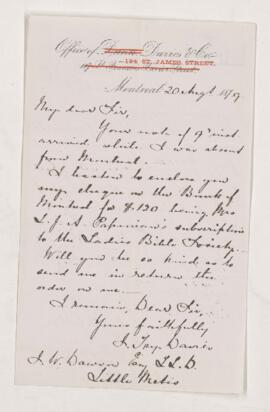 Office of Dunn, Davies & Co.
194 ST. JAMES STREET.
Montreal 20 Augt 1879
My dear Sir,
Your note of 9 inst
arrived while I was absent
from Montreal.
I hasten to enclose you
my cheque on the Bank of
Montreal for $130 being Mrs
L. J. A. Papineau's subscription
to the Ladies Bible Society.
Will you be so kind as to
send me in return the
order on me.
I remain, Dear Sir,
Yours faithfully
Davies
J. W. Dawson Esq LL.D.
Little Metis